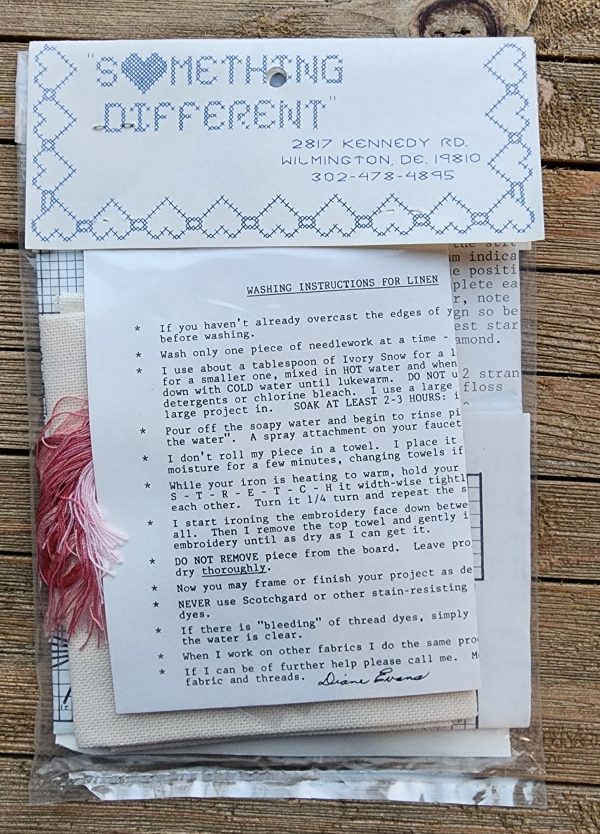 "S♥METHING
DIFFERENT"
2817 KENNEDY RD.
WILMINGTON, DE. 19810
302-478-4895
WASHING INSTRUCTIONS FOR LINEN
* If you haven't already overcast the edges of y
before washing.
* Wash only one piece of needlework at a time -
* I use about a tablespoon of Ivory Snow for a l
for a smaller one, mixed in HOT water and when
down with COLD water until lukewarm. DO NOT u
detergents or chlorine bleach. I use a large
large project in. SOAK AT LEAST 2-3 HOURS: i
* Pour off the soapy water and begin to rinse pi
the water". A spray attachment on your faucet
* I don't roll my piece in a towel. I place it
moisture for a few minutes, changing towels if
* While your iron is heating to warm, hold your
S - T - R - E - T - C - H it width-wise tightl
each other. Turn it 1/4 turn and repeat the s
* I start ironing the embroidery face down betwe
all. Then I remove the top towel and gently i
embroidery until as dry as I can get it.
* DO NOT REMOVE piece from the board. Leave pro
dry thoroughly.
* Now you may frame or finish your project as de
* NEVER use Scotchgard or other stain-resisting
dyes.
* If there is "bleeding" of thread dyes, simply
the water is clear.
* When I work on other fabrics I do the same pro
* If I can be of further help please call me. M
fabric and threads. Diane Evans
the stit
am indica
e positi
plete ea
r, note
gn so be
est star
amond.
2 stran
floss